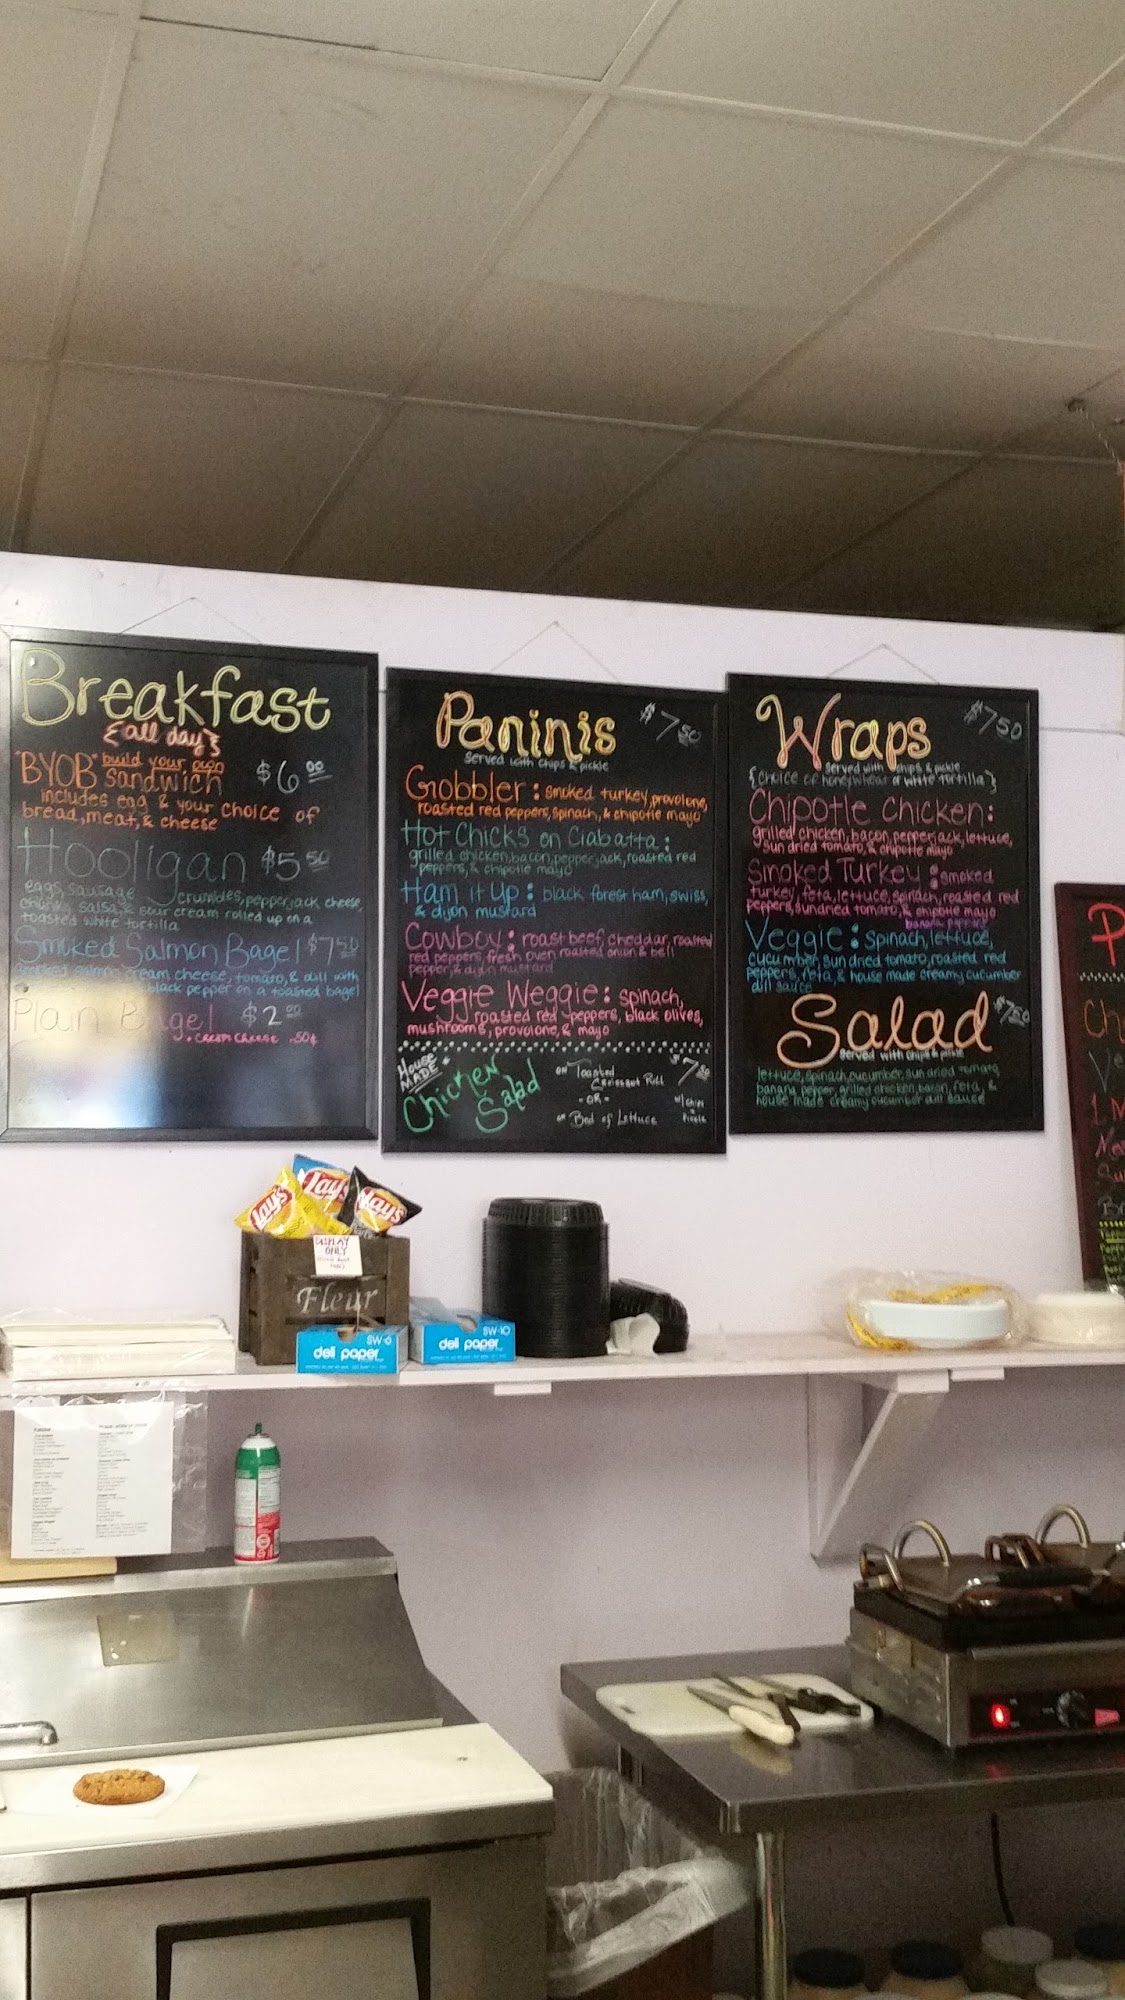 Breakfast
{all day}
"BYOB" build your own
sandwich $6.00
includes egg & your choice of
bread, meat, & cheese
Hooligan $5.50
eggs, sausage crumbles, pepperjack cheese,
chunky salsa, & sour cream rolled up on a
toasted white tortilla
Smoked Salmon Bagel $7.50
smoked salmon, cream cheese, tomato, & dill with
black pepper on a toasted bagel
Plain Bagel $2.00
• cream cheese .50¢
Paninis $7.50
served with chips & pickle
Gobbler: smoked turkey, provolone,
roasted red peppers, spinach, & chipotle mayo
Hot Chicks on Ciabatta:
grilled chicken, bacon, pepper jack, roasted red
peppers, & chipotle mayo
Ham it Up: black forest ham, swiss,
& dijon mustard
Cowboy: roast beef, cheddar, roasted
red peppers, fresh oven roasted onion & bell
pepper, & dijon mustard
Veggie Weggie: spinach,
roasted red peppers, black olives,
mushrooms, provolone, & mayo
House
Made
Chicken
Salad
on Toasted
Croissant Roll
-or-
on Bed of Lettuce
$7.50
w/ chips
&
Pickle
Wraps $7.50
served with chips & pickle
{choice of honey wheat or white tortilla}
Chipotle Chicken:
grilled chicken, bacon, pepper jack, lettuce,
sun dried tomato, & chipotle mayo
Smoked Turkey: smoked
turkey, feta, lettuce, spinach, roasted red
peppers, sundried tomato, & chipotle mayo
banana peppers
Veggie: spinach, lettuce,
cucumber, sun dried tomato, roasted red
peppers, feta, & house made creamy cucumber
dill sauce
Salad $7.50
served with chips & pickle
lettuce, spinach, cucumber, sun dried tomato,
banana pepper, grilled chicken, bacon, feta, &
house made creamy cucumber dill sauce
P
Ch
Ve
1 M
Lay's
Lay's
Lay's
DISPLAY
ONLY
Fleur
SW-6
deli paper
SW-10
deli paper